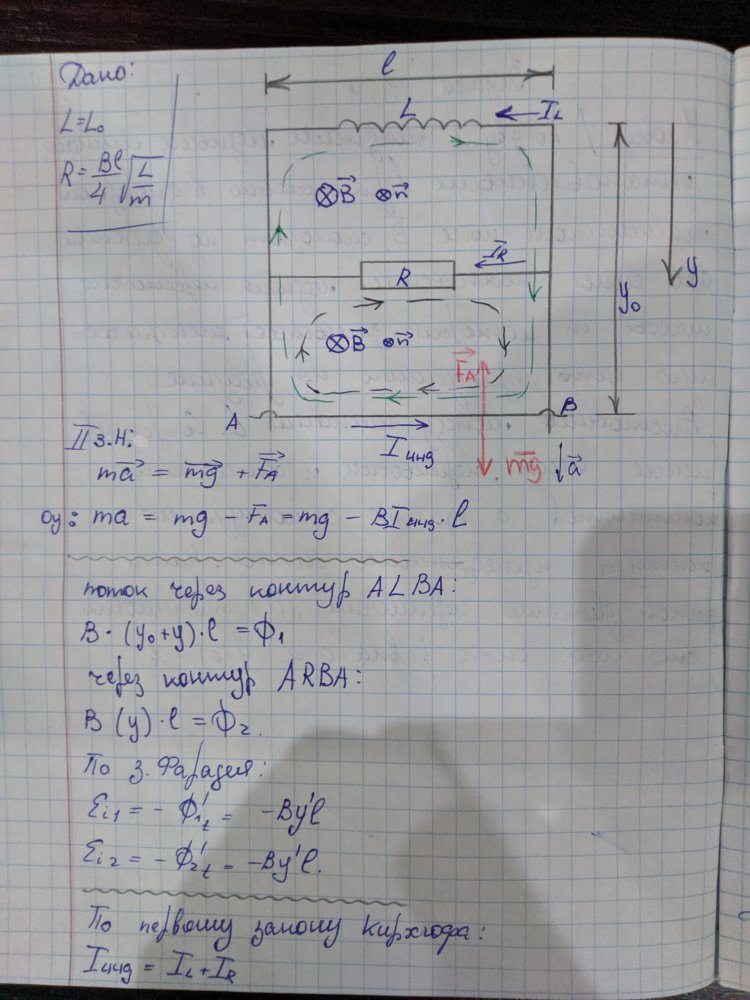 Дано:
L=L₀
R = Bl/4 √(L/m)
l
L
I_L
⊗B⃗ ⊙n⃗
I_R
R
y
y₀
⊗B⃗ ⊙n⃗
F⃗_A
A
B
I инд
mg⃗
a⃗
II з.Н:
ma⃗ = mg⃗ + F⃗_A
Oy: ma = mg - F_A = mg - BI инд · l
поток через контур ALBA:
B · (y₀+y) · l = Φ₁
через контур ARBA:
B (y) · l = Φ₂.
По з. Фарадея:
Ɛi₁ = - Φ₁'t = -By'l
Ɛi₂ = - Φ₂'t = -By'l.
По первому закону Кирхгофа:
I инд = I_L + I_R